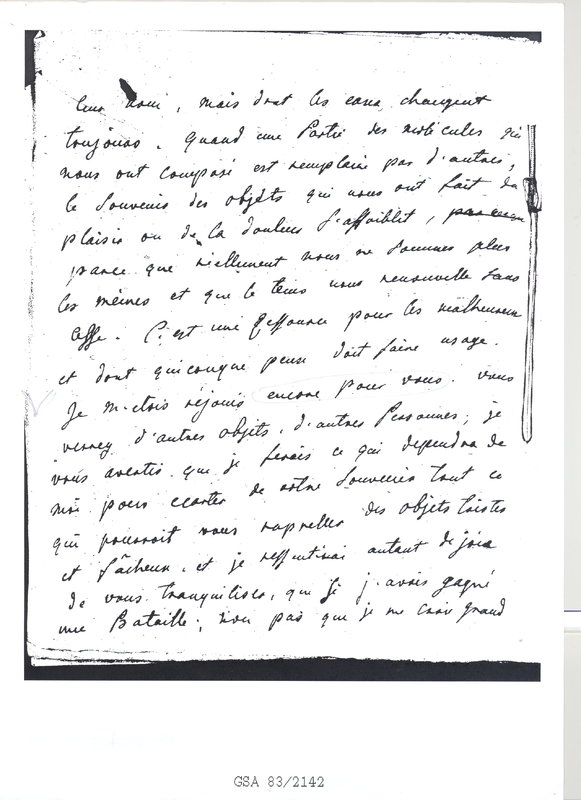 leur nom, mais dont les eaux changent
toujours. Quand une Partie des molécules qui
nous ont composé est remplacée par d'autres,
le Souvenir des objets qui nous ont fait du
plaisir ou de la douleur S'affoiblit,
parce que réellement nous ne Sommes plus
les mêmes et que le tems nous renouvelle Sans
Cesse. C'est une Ressource pour les malheureux
et dont quiconque pense doit faire usage.
Je m'étois réjouis encore pour vous. vous
verrez d'autres objets, d'autres Personnes; je
vous avertis que je ferais ce qui dependra de
moi pour ecarter de votre Souvenir tout ce
qui pourroit vous rapeller des objets tristes
et fâcheux. et je ressentirai autant de joia
de vous tranquiliser, que si j'avois gagné
une Bataille; non pas que je me croie grand
GSA 83/2142